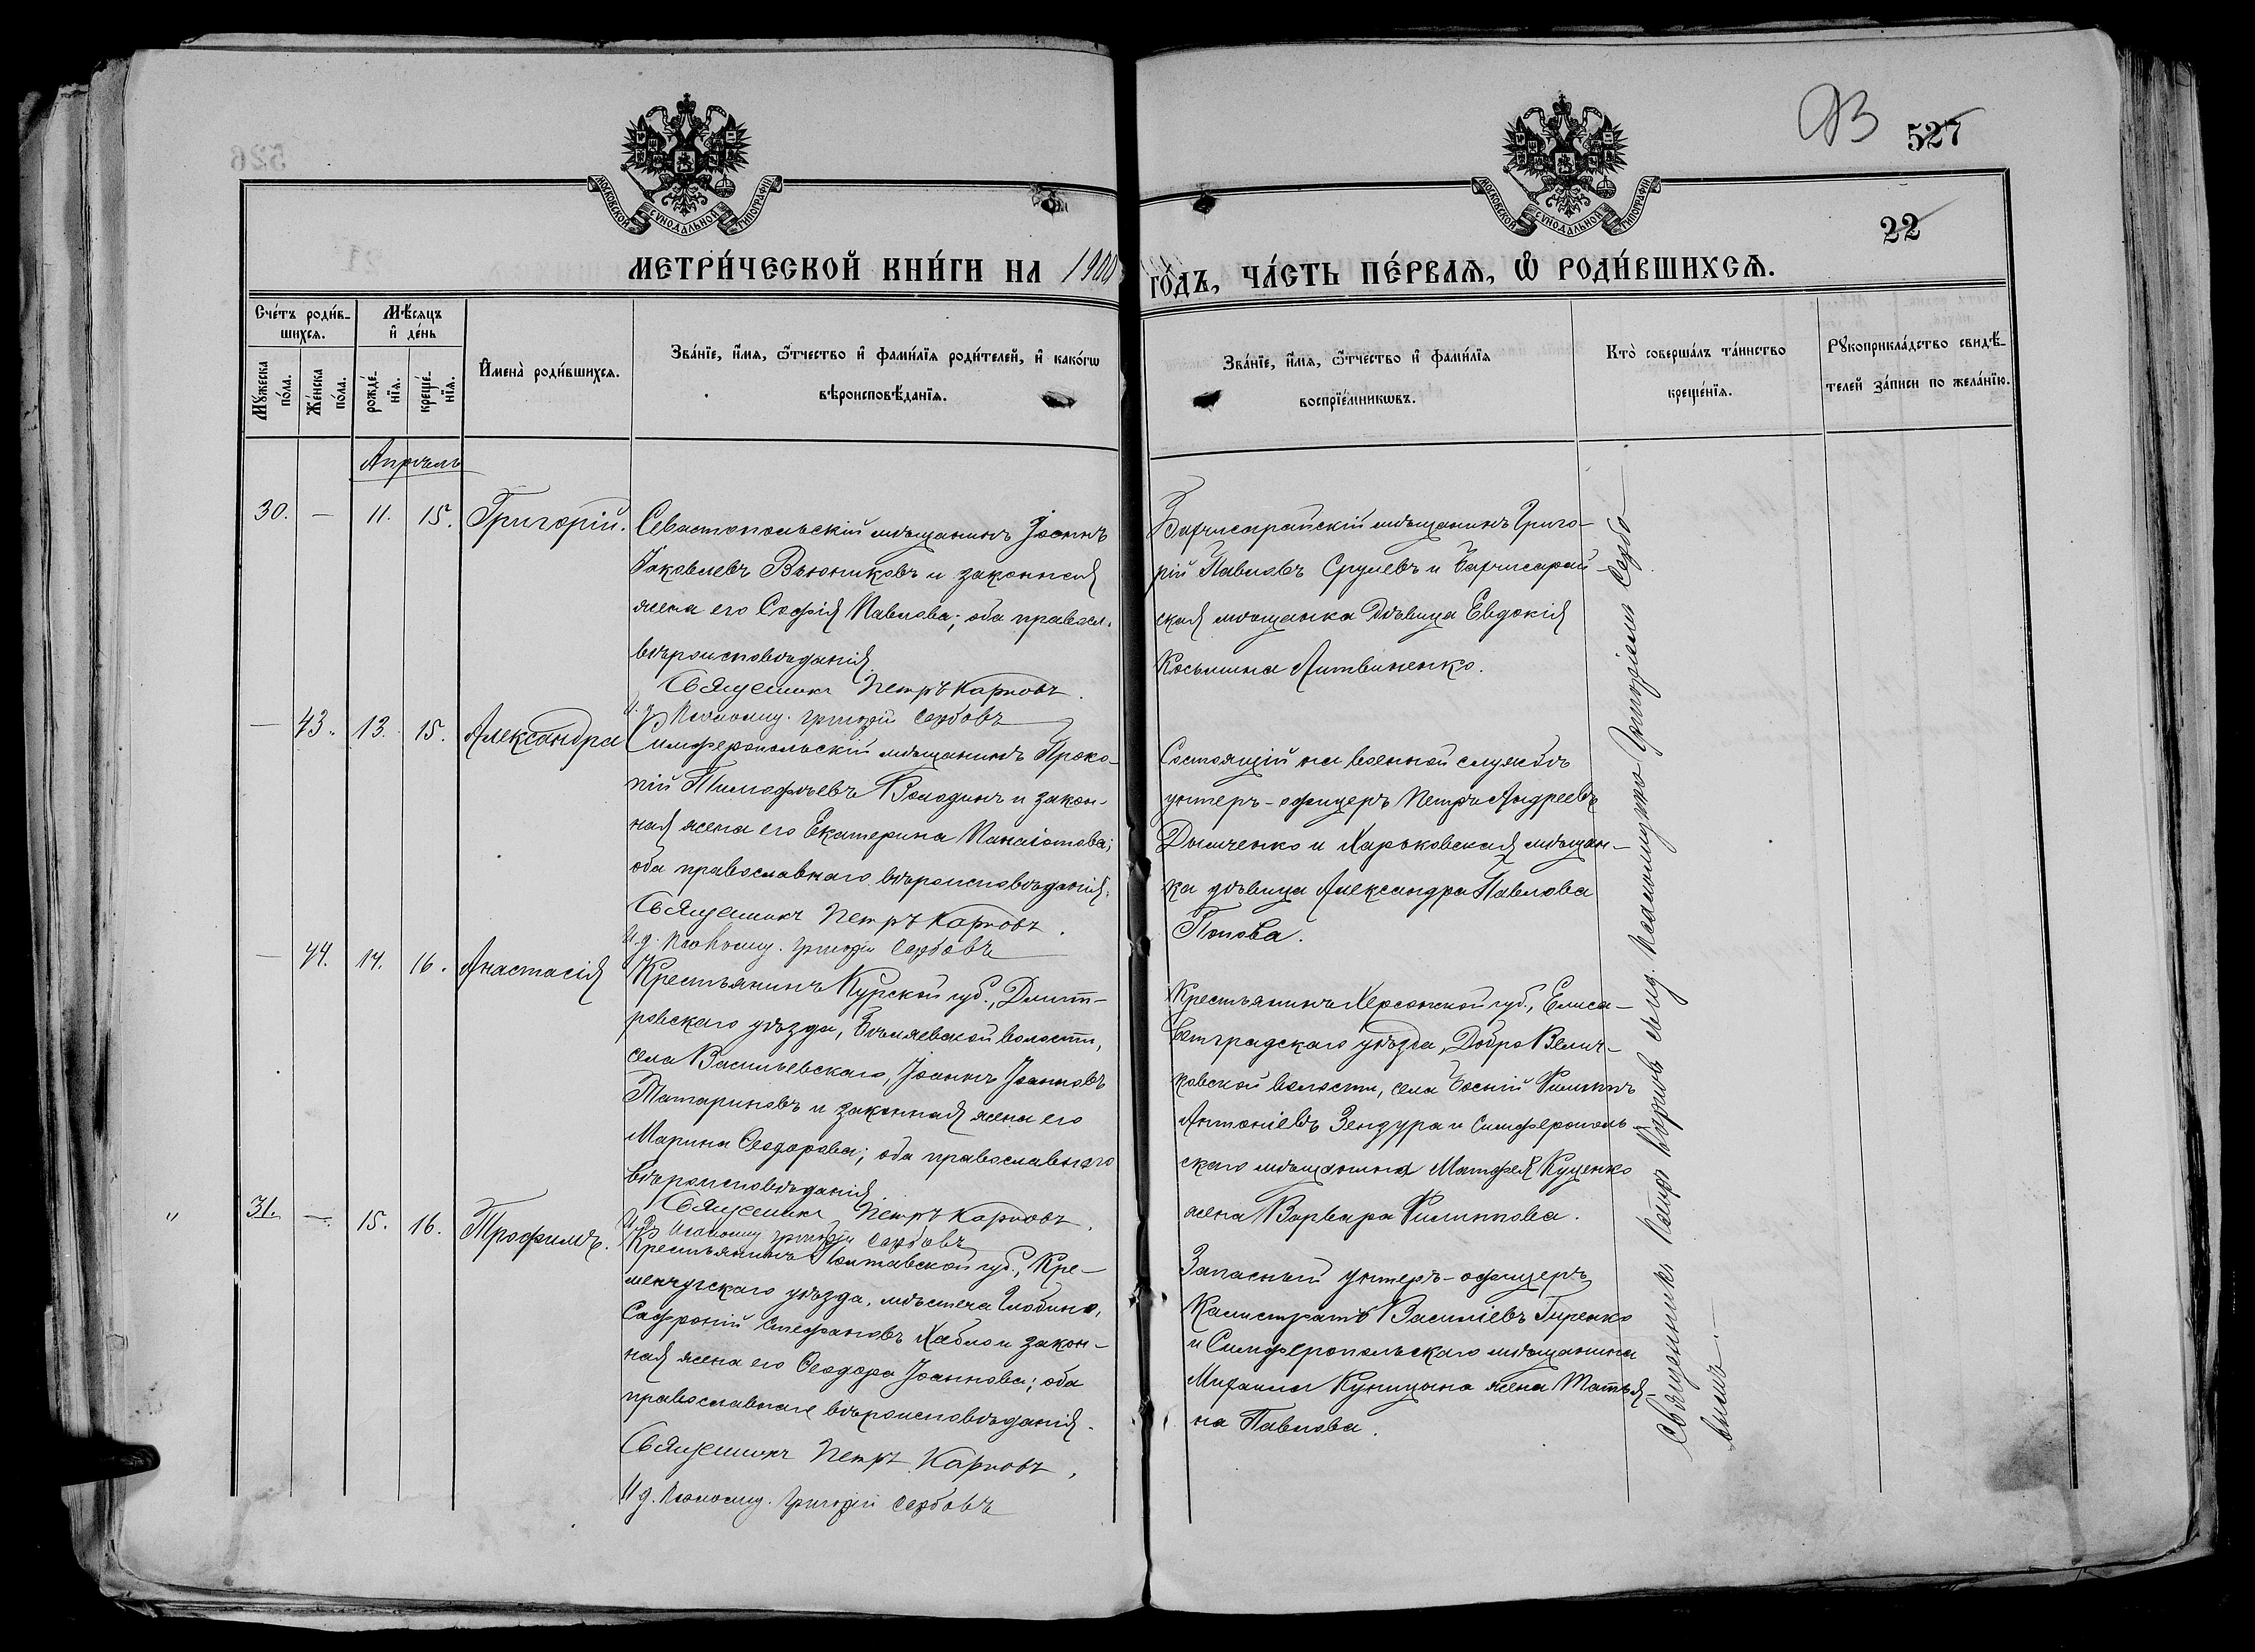 527
22
МОСКОВСКОЙ СѴНОДАЛЬНОЙ ТИПОГРАФІИ
МОСКОВСКОЙ СѴНОДАЛЬНОЙ ТИПОГРАФІИ
МЕТРИ́ЧЕСКОЙ КНИ́ГИ НА 1900
ГО́ДЪ, ЧА́СТЬ ПЕ́РВАѦ, Ѽ РОДИ́ВШИХСѦ.
Сче́тъ роди́в-
шихсѧ.
Мѣ́сѧцъ
и҆ де́нь
Мꙋ́жеска
по́ла.
Же́нска
по́ла.
рожде́-
нїѧ.
креще́-
нїѧ.
И҆мена̀ роди́вшихсѧ.
Зва́нїе, и҆́мѧ, ѻ҆́тчество и҆ фами́лїѧ роди́телей, и҆ како́гѡ
вѣроисповѣ́данїѧ.
Зва́нїе, и҆́мѧ, ѻ҆́тчество и҆ фами́лїѧ
воспрїе́мникѡвъ.
Кто̀ соверша́лъ та́инство
креще́нїѧ.
Рꙋкоприкла́дство свидѣ́-
телей за́писи по жела́нїю.
Апрѣль
30. — 11. 15. Григорій.
Севастопольскій мѣщанинъ Іоаннъ
Яковлевъ Вьюниковъ и законная
жена его Софія Павлова; оба правосл.
вѣроисповѣданія.
Священникъ Петръ Карповъ.
И. д. Псаломщ. Григорій Сербовъ
Бахчисарайскій мѣщанинъ Григо-
рій Павловъ Срулевъ и Бахчисарай-
ская мѣщанка дѣвица Евдокія
Косьмина Литвиненко.
— 43. 13. 15. Александра
Симферопольскій мѣщанинъ Проко-
пій Тимофѣевъ Володинъ и закон-
ная жена его Екатерина Панаіотова;
оба православнаго вѣроисповѣданія.
Священникъ Петръ Карповъ.
И. д. Псаломщ. Григорій Сербовъ
Состоящій на военной службѣ
унтеръ-офицеръ Петръ Андреевъ
Дымченко и Харьковская мѣщан-
ка дѣвица Александра Павлова
Попова.
— 44. 14. 16. Анастасія
Крестьянинъ Курской губ., Дмит-
ровскаго уѣзда, Бѣляевской волости,
села Васильевскаго, Іоаннъ Іоанновъ
Татариновъ и законная жена его
Марина Ѳеодорова; оба православнаго
вѣроисповѣданія.
Священникъ Петръ Карповъ.
И. д. Псаломщ. Григорій Сербовъ
Крестьянинъ Херсонской губ., Елиса-
ветградскаго уѣзда, Добро Велич-
ковской волости, села Филиппъ
Антоніевъ Зендура и Симферополь-
скаго мѣщанина Матфея Куценко
жена Варвара Филиппова.
" 31. — 15. 16. Трофимъ.
Крестьянинъ Полтавской губ., Кре-
менчугскаго уѣзда, мѣстеча Глобино,
Сафроній Стефановъ Хабло и закон-
ная жена его Ѳеодора Іоаннова; оба
православнаго вѣроисповѣданія.
Священникъ Петръ Карповъ.
И. д. Псаломщ. Григорій Сербовъ
Запасный унтеръ-офицеръ
Калистратъ Василіевъ Гиренко
и Симферопольскаго мѣщанина
Михаила Куницына жена Татья-
на Павлова.
Священникъ Петръ Карповъ съ и. д. Псаломщика Григоріемъ Сербо-
вымъ.—